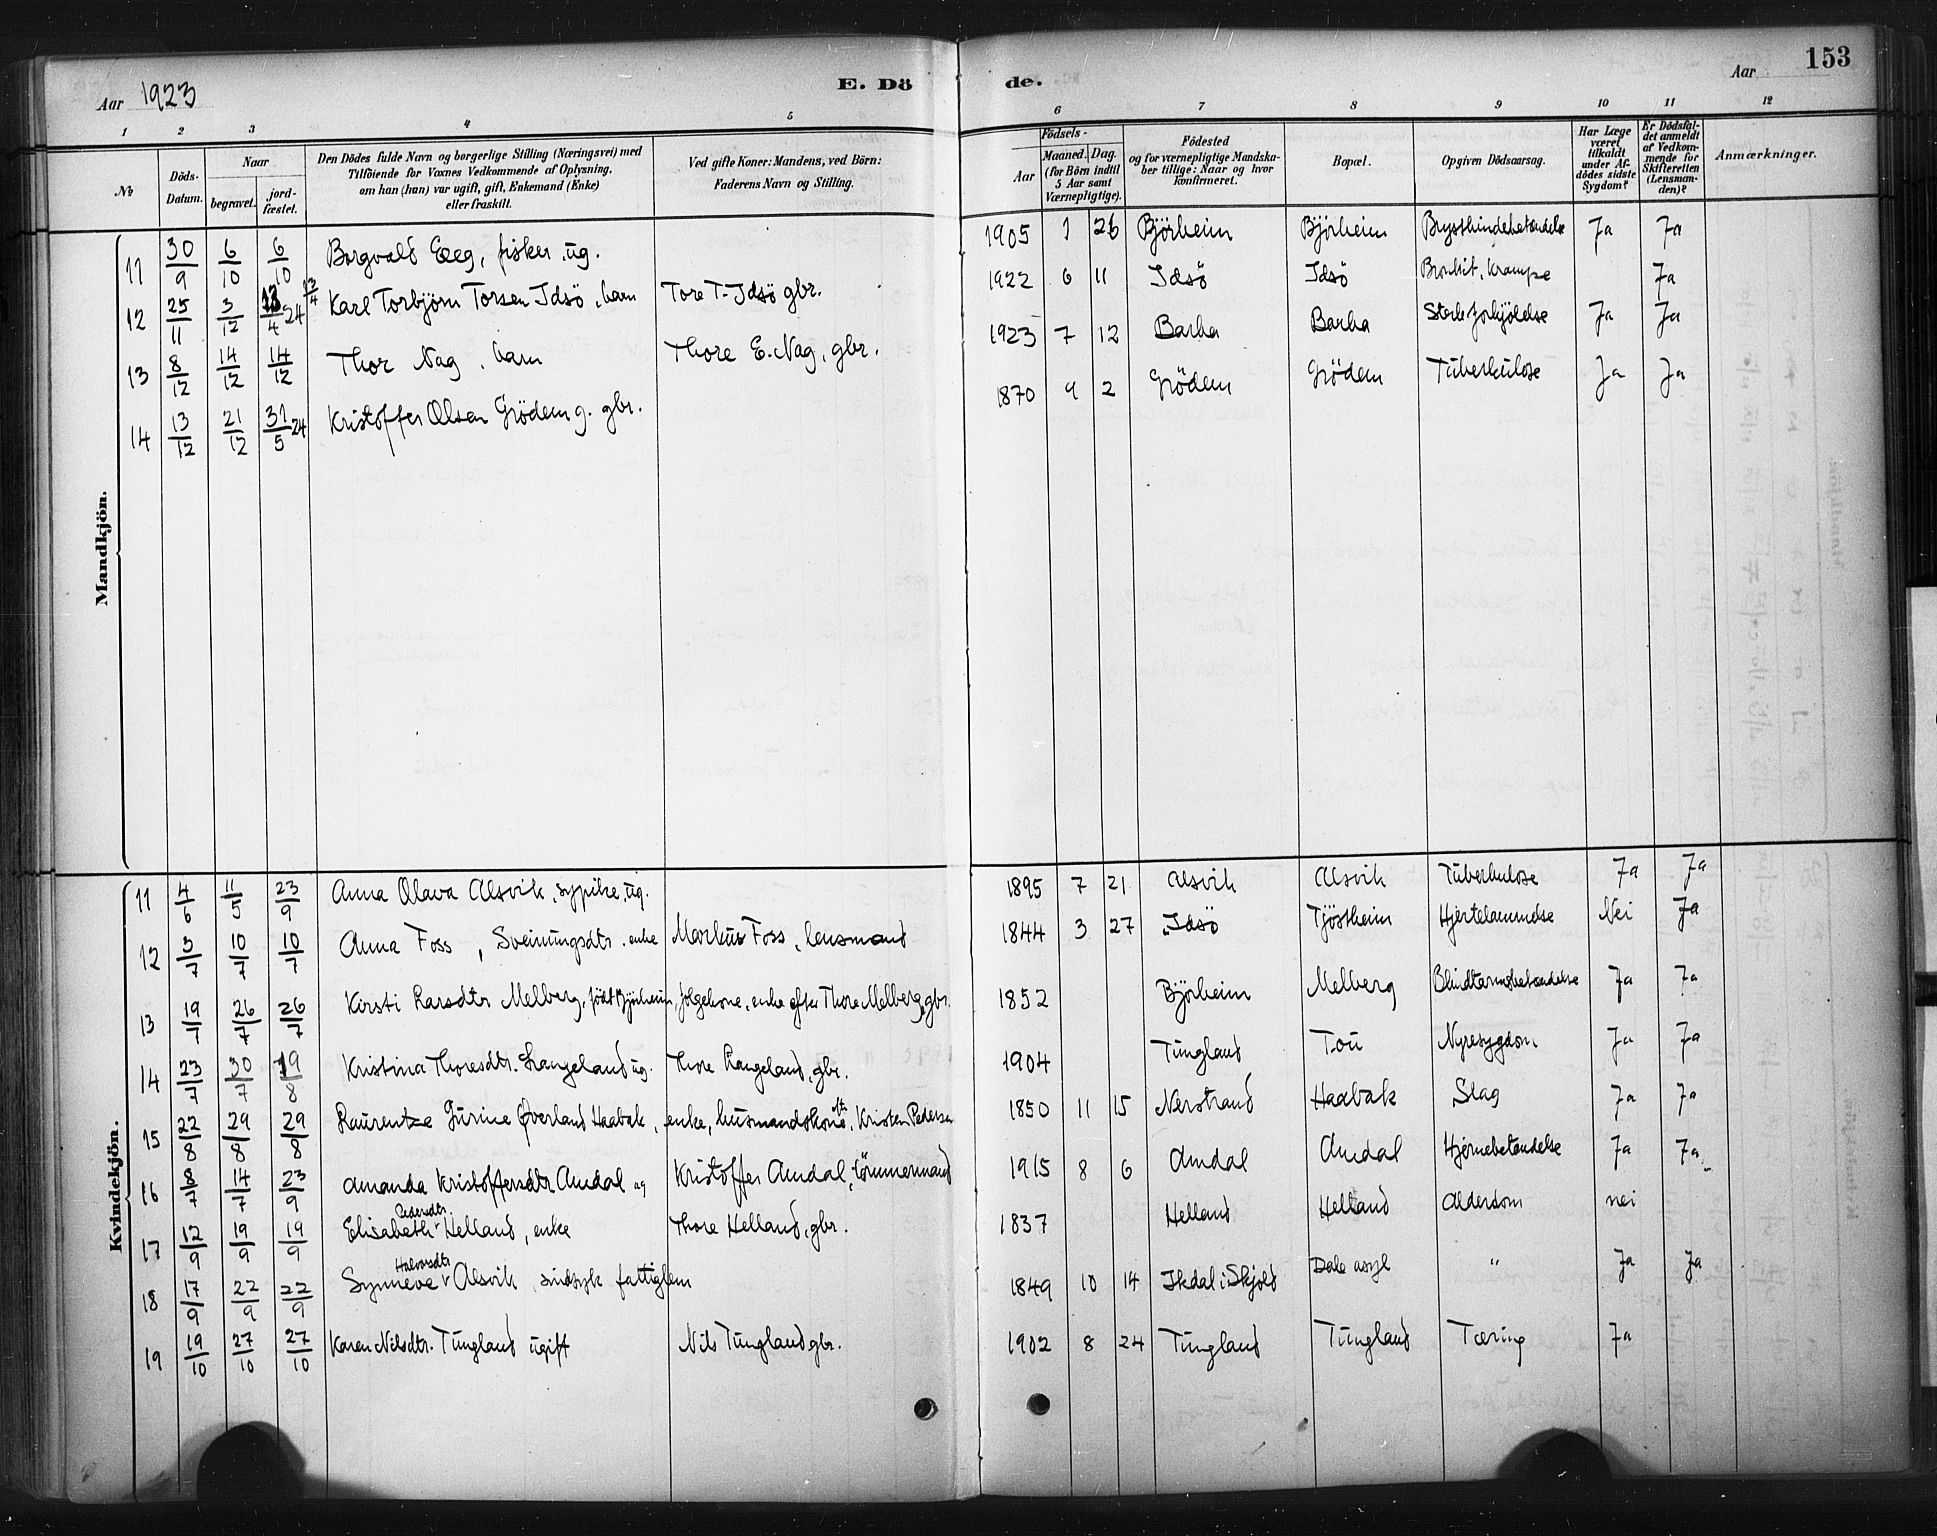 Aar 1923 E. Dö de. Aar 153
1 2 3 4 5 6 7 8 9 10 11 12
No Döds-Datum. Naar begravet. jord-fæstet. Den Dödes fulde Navn og borgerlige Stilling (Næringsvei) med Tilföiende for Voxnes Vedkommende af Oplysning, om han (hun) var ugift, gift, Enkemand (Enke) eller fraskilt. Ved gifte Koner: Mandens, ved Börn: Faderens Navn og Stilling. Födsels- Aar Maaned. Dag. (for Börn indtil 5 Aar samt Værnepligtige). Födested og for værnepligtige Mandskaber tillige: Naar og hvor konfirmeret. Bopæl. Opgiven Dödsaarsag. Har Læge været tilkaldt under Afdödes sidste Sygdom? Er Dödsfaldet anmeldt af Vedkommende for Skifteretten (Lensmanden)? Anmærkninger.
Mandkjön.
11 30/9 6/10 6/10 Borgvald Eeg, fisker ug. 1905 1 26 Björheim Björheim Brysthindebetændelse Ja Ja
12 25/11 3/12 13/4 24 13/4 Karl Torbjörn Torsen Idsö, barn Tore T. Idsö gbr. 1922 6 11 Idsö Idsö Bronkit, Krampe Ja
13 8/12 14/12 14/12 Thor Nag, barn Thore E. Nag, gbr. 1923 7 12 Barka Barka Sterk forkjölelse Ja Ja
14 13/12 21/12 31/5 24 Kristoffer Olsen Grödem g. gbr. 1870 9 2 Grödem Grödem Tuberkulose Ja Ja
Kvindekjön.
11 4/6 11/5 23/9 Anna Olava Alsvik, sypike, ug. 1895 7 21 Alsvik Alsvik Tuberkulose Ja Ja
12 3/7 10/7 10/7 Anna Foss, Sveinungsdtr. enke Markus Foss, lensmand 1844 3 27 Idsö Tjöstheim Hjertelammelse Nei Ja
13 19/7 26/7 26/7 Kirsti Larsdtr Melberg, födt Björheim, folgekone, enke efter Thore Melberg, gbr. 1852 Björheim Melberg Blindtarmsbetændelse Ja Ja
14 23/7 30/7 19/8 Kristina Thoresdtr. Langeland ug. Thore Langeland, gbr. 1904 Tungland Tou Nyresygdom Ja Ja
15 22/8 29/8 29/8 Laurentze Gurine Øverland Haabak, enke, husmandskone eft. Kristen Pedersen 1850 11 15 Nerstrand Haabak Slag Ja Ja
16 8/7 14/7 23/9 Amanda Kristoffersdtr Amdal ug Kristoffer Amdal, tömmermand 1915 8 6 Amdal Amdal Hjernebetændelse Ja Ja
17 12/9 19/9 19/9 Elisabeth Pedersdtr. Helland, enke Thore Helland, gbr. 1837 Helland Helland Alderdom nei
18 17/9 22/9 22/9 Synneve Halvorsdtr Alsvik, sindsyk fattiglem 1849 10 14 Ikdal i Skjold Dale asyl " Ja Ja
19 19/10 27/10 27/10 Karen Nilsdtr. Tungland ugift Nils Tungland gbr. 1902 8 24 Tungland Tungland Tæring Ja